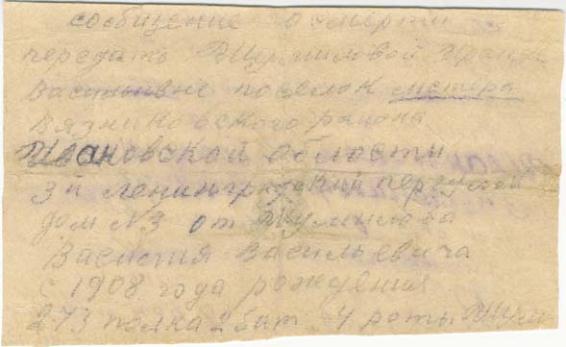 сообщение о смерти
передать
Васильевне поселок мстера
Вязниковского района
Ивановской области
3й Ленинградский переулок
дом №3 от
Василия Васильевича
с 1908 года рождения
273 полка 2 бат. 4 роты